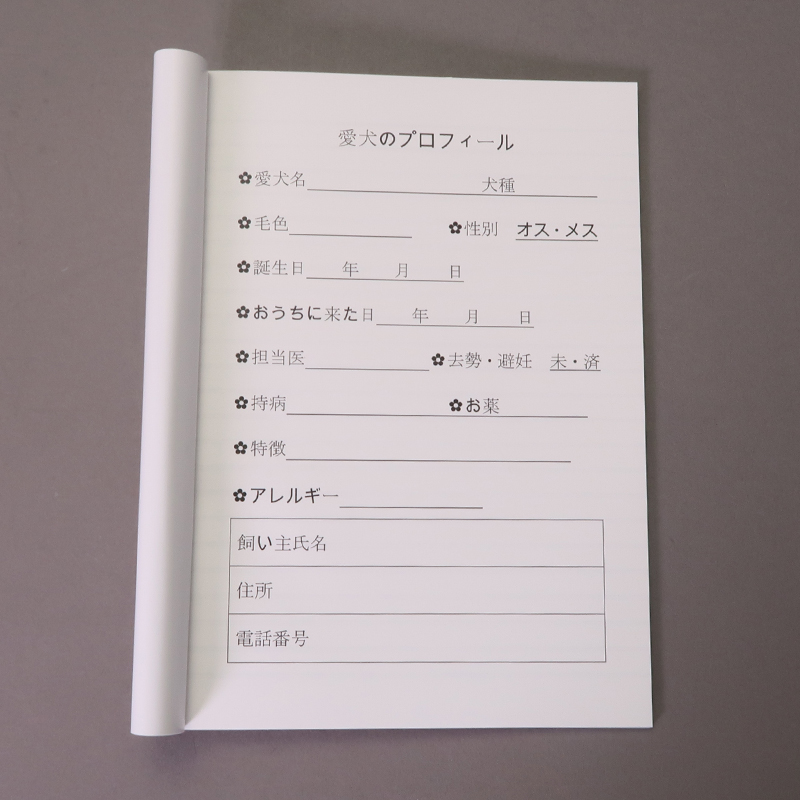 愛犬のプロフィール
✿愛犬名 犬種
✿毛色 ✿性別 オス・メス
✿誕生日 年 月 日
✿おうちに来た日 年 月 日
✿担当医 ✿去勢・避妊 未・済
✿持病 ✿お薬
✿特徴
✿アレルギー
飼い主氏名
住所
電話番号